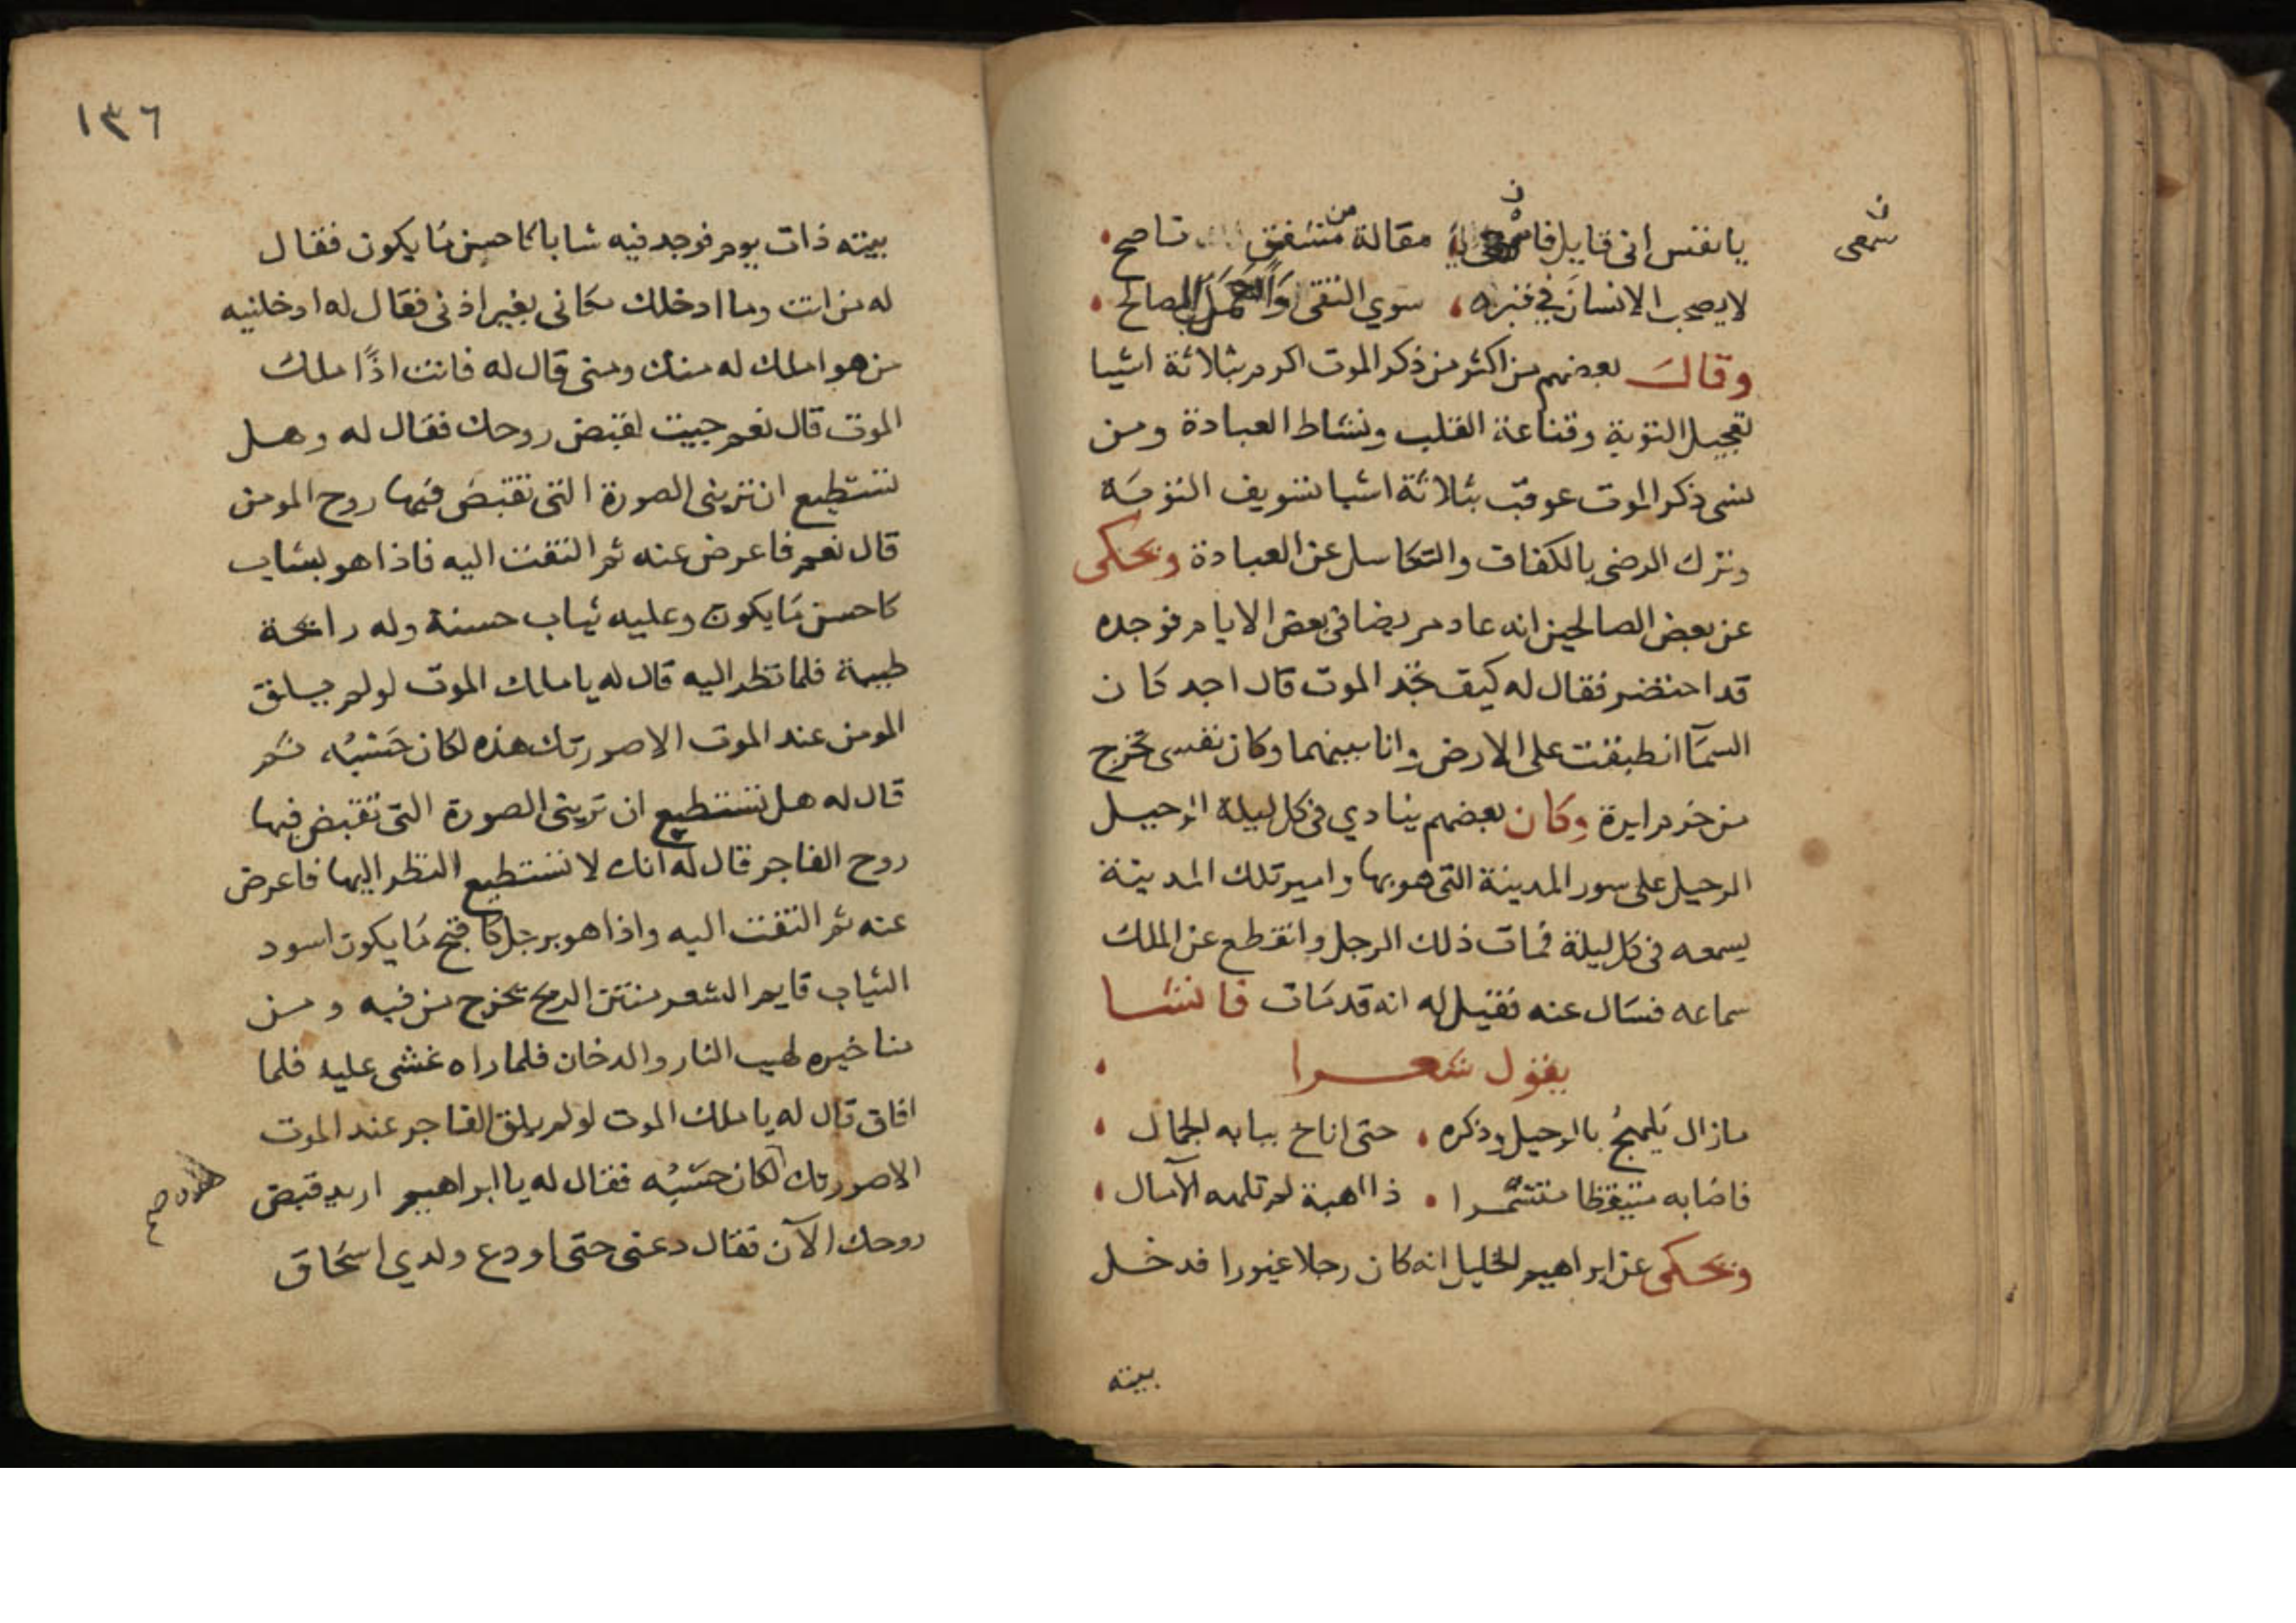 يا نفس اني قايل فاسمعي مقالة من مشفق ناصح
لا يصحب الانسان في قبره سوي التقى والعمل الصالح
وقال بعضهم من اكثر من ذكر الموت اكرم بثلاثة اشيا
تعجيل التوبة وقناعة القلب ونشاط العبادة ومن
نسى ذكر الموت عوقب بثلاثة اشيا تسويف التوبة
وترك الرضى بالكفاف والتكاسل عن العبادة ويحكى
عن بعض الصالحين انه عاد مريضا في بعض الايام فوجده
قد احتضر فقال له كيف تجد الموت قال اجد كان
السمآ انطبقت على الارض وانا بينهما وكان نفسى تخرج
من خرم ابرة وكان بعضهم ينادي في كل ليلة الرحيل
الرحيل على سور المدينة التى هو بها وامير تلك المدينة
يسمعه في كل ليلة فمات ذلك الرجل وانقطع عن الملك
سماعه فسال عنه فقيل له انه قد مات فانشا
يقول شعرا
مازال يلهج بالرحيل وذكره حتى اناخ ببابه الجمال
فاصابه متيقظا متشمرا ذا اهبة لم تلهه الآمال
ويحكى عن ابراهيم الخليل انه كان رجلا غيورا فدخل
بيته
سمعى
١٣٦
بيته ذات يوم فوجد فيه شابا كاحسن ما يكون فقال
له من انت وما ادخلك مكانى بغير اذنى فقال له ادخلنيه
من هو املك له منك ومنى قال له فانت اذًا ملك
الموت قال نعم جيت لقبض روحك فقال له وهل
تستطيع ان تريني الصورة التى تقبض فيها روح المومن
قال نعم فاعرض عنه ثم التفت اليه فاذا هو بشاب
كاحسن ما يكون وعليه ثياب حسنة وله رايحة
طيبة فلما نظر اليه قال له يا ملك الموت لو لم يلق
المومن عند الموت الا صورتك هذه لكان حَسْبُه ثم
قال له هل تستطيع ان تريني الصورة التى تقبض فيها
روح الفاجر قال له انك لا تستطيع النظر اليها فاعرض
عنه ثم التفت اليه واذا هو برجل كاقبح ما يكون اسود
الثياب قايم الشعر منتن الريح تخرج من فيه ومن
مناخيره لهيب النار والدخان فلما راه غشى عليه فلما
افاق قال له يا ملك الموت لو لم يلق الفاجر عند الموت
الا صورتك لكان حَسْبُه فقال له يا ابراهيم اريد قبض
روحك الآن فقال دعنى حتى اودع ولدي اسحاق